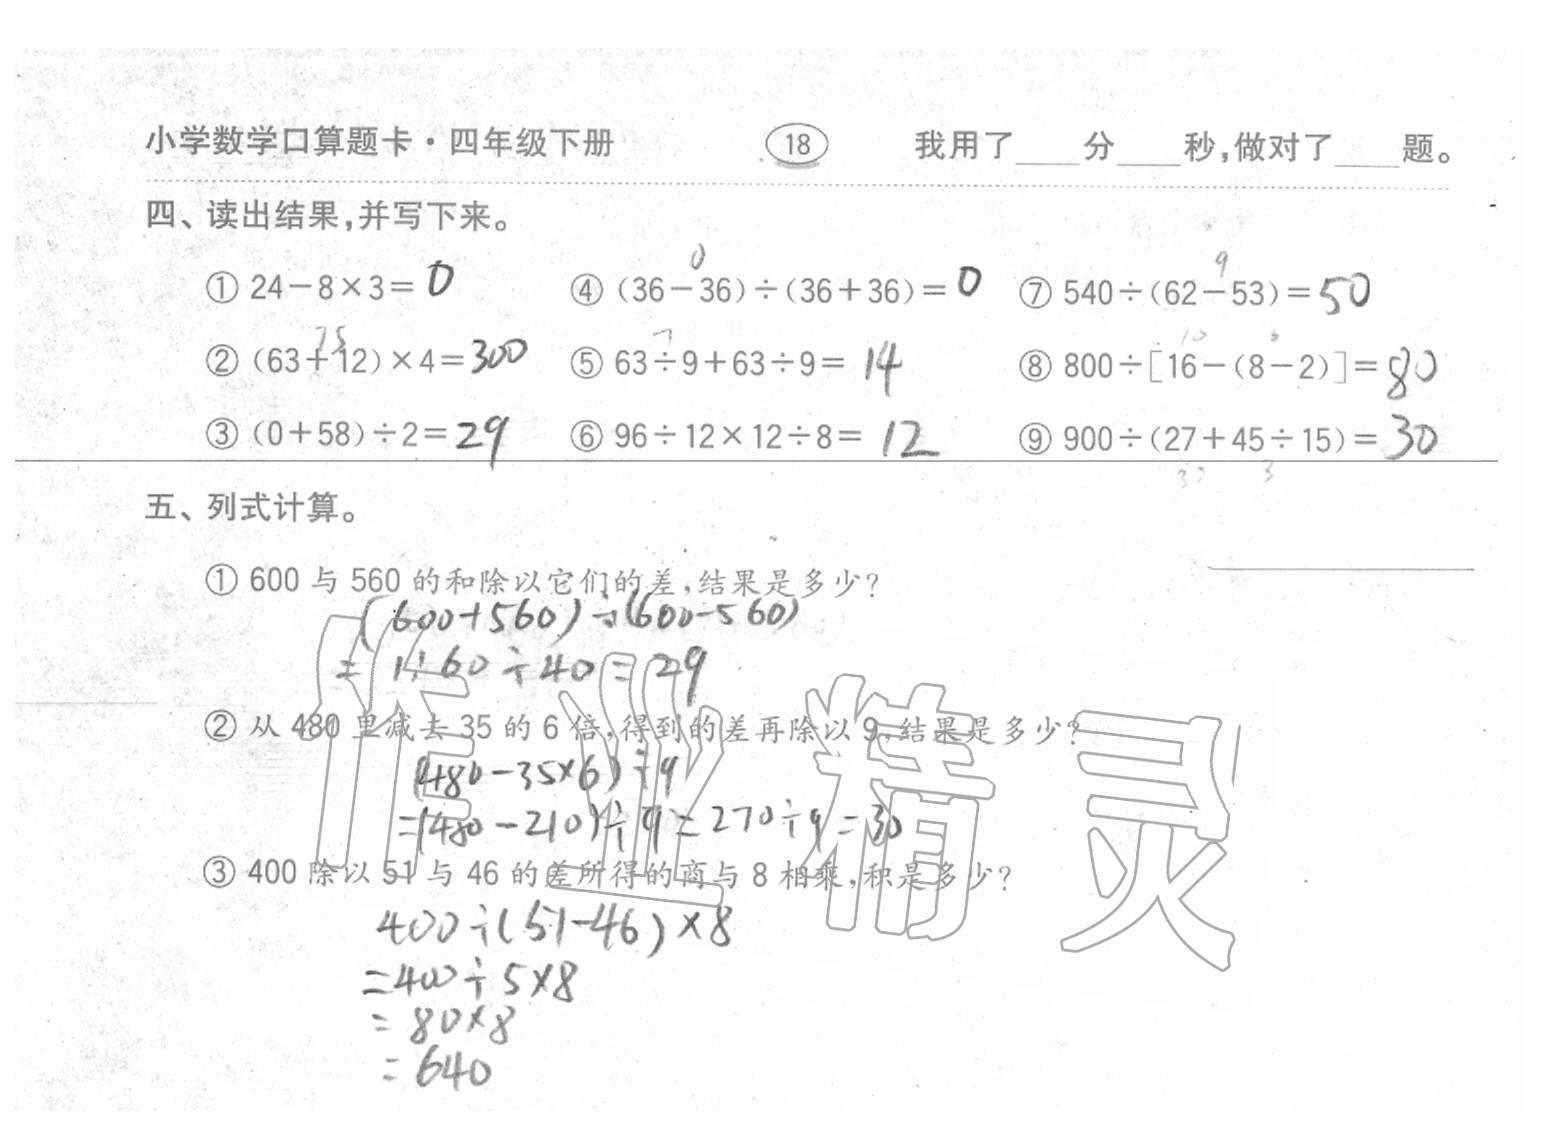 小学数学口算题卡·四年级下册 18 我用了____分____秒,做对了____题。
四、读出结果,并写下来。
0 9
① 24-8×3=0 ④ (36-36)÷(36+36)=0 ⑦ 540÷(62-53)=50
75 7 10 6
② (63+12)×4=300 ⑤ 63÷9+63÷9=14 ⑧ 800÷[16-(8-2)]=80
③ (0+58)÷2=29 ⑥ 96÷12×12÷8=12 ⑨ 900÷(27+45÷15)=30
30 3
五、列式计算。
① 600与560的和除以它们的差,结果是多少?
(600+560)÷(600-560)
=1160÷40=29
② 从480里减去35的6倍,得到的差再除以9,结果是多少?
(480-35×6)÷9
=(480-210)÷9=270÷9=30
③ 400除以51与46的差所得的商与8相乘,积是多少?
400÷(51-46)×8
=400÷5×8
=80×8
=640
作业精灵